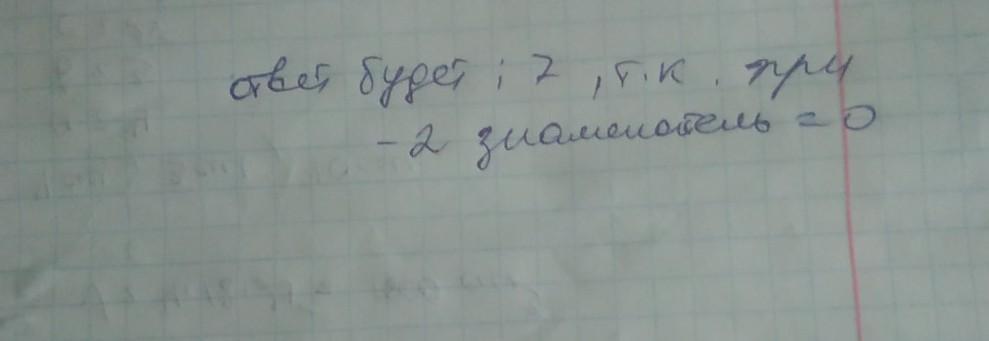 ответ будет ; 7 , т.к. при
-2 знаменатель = 0